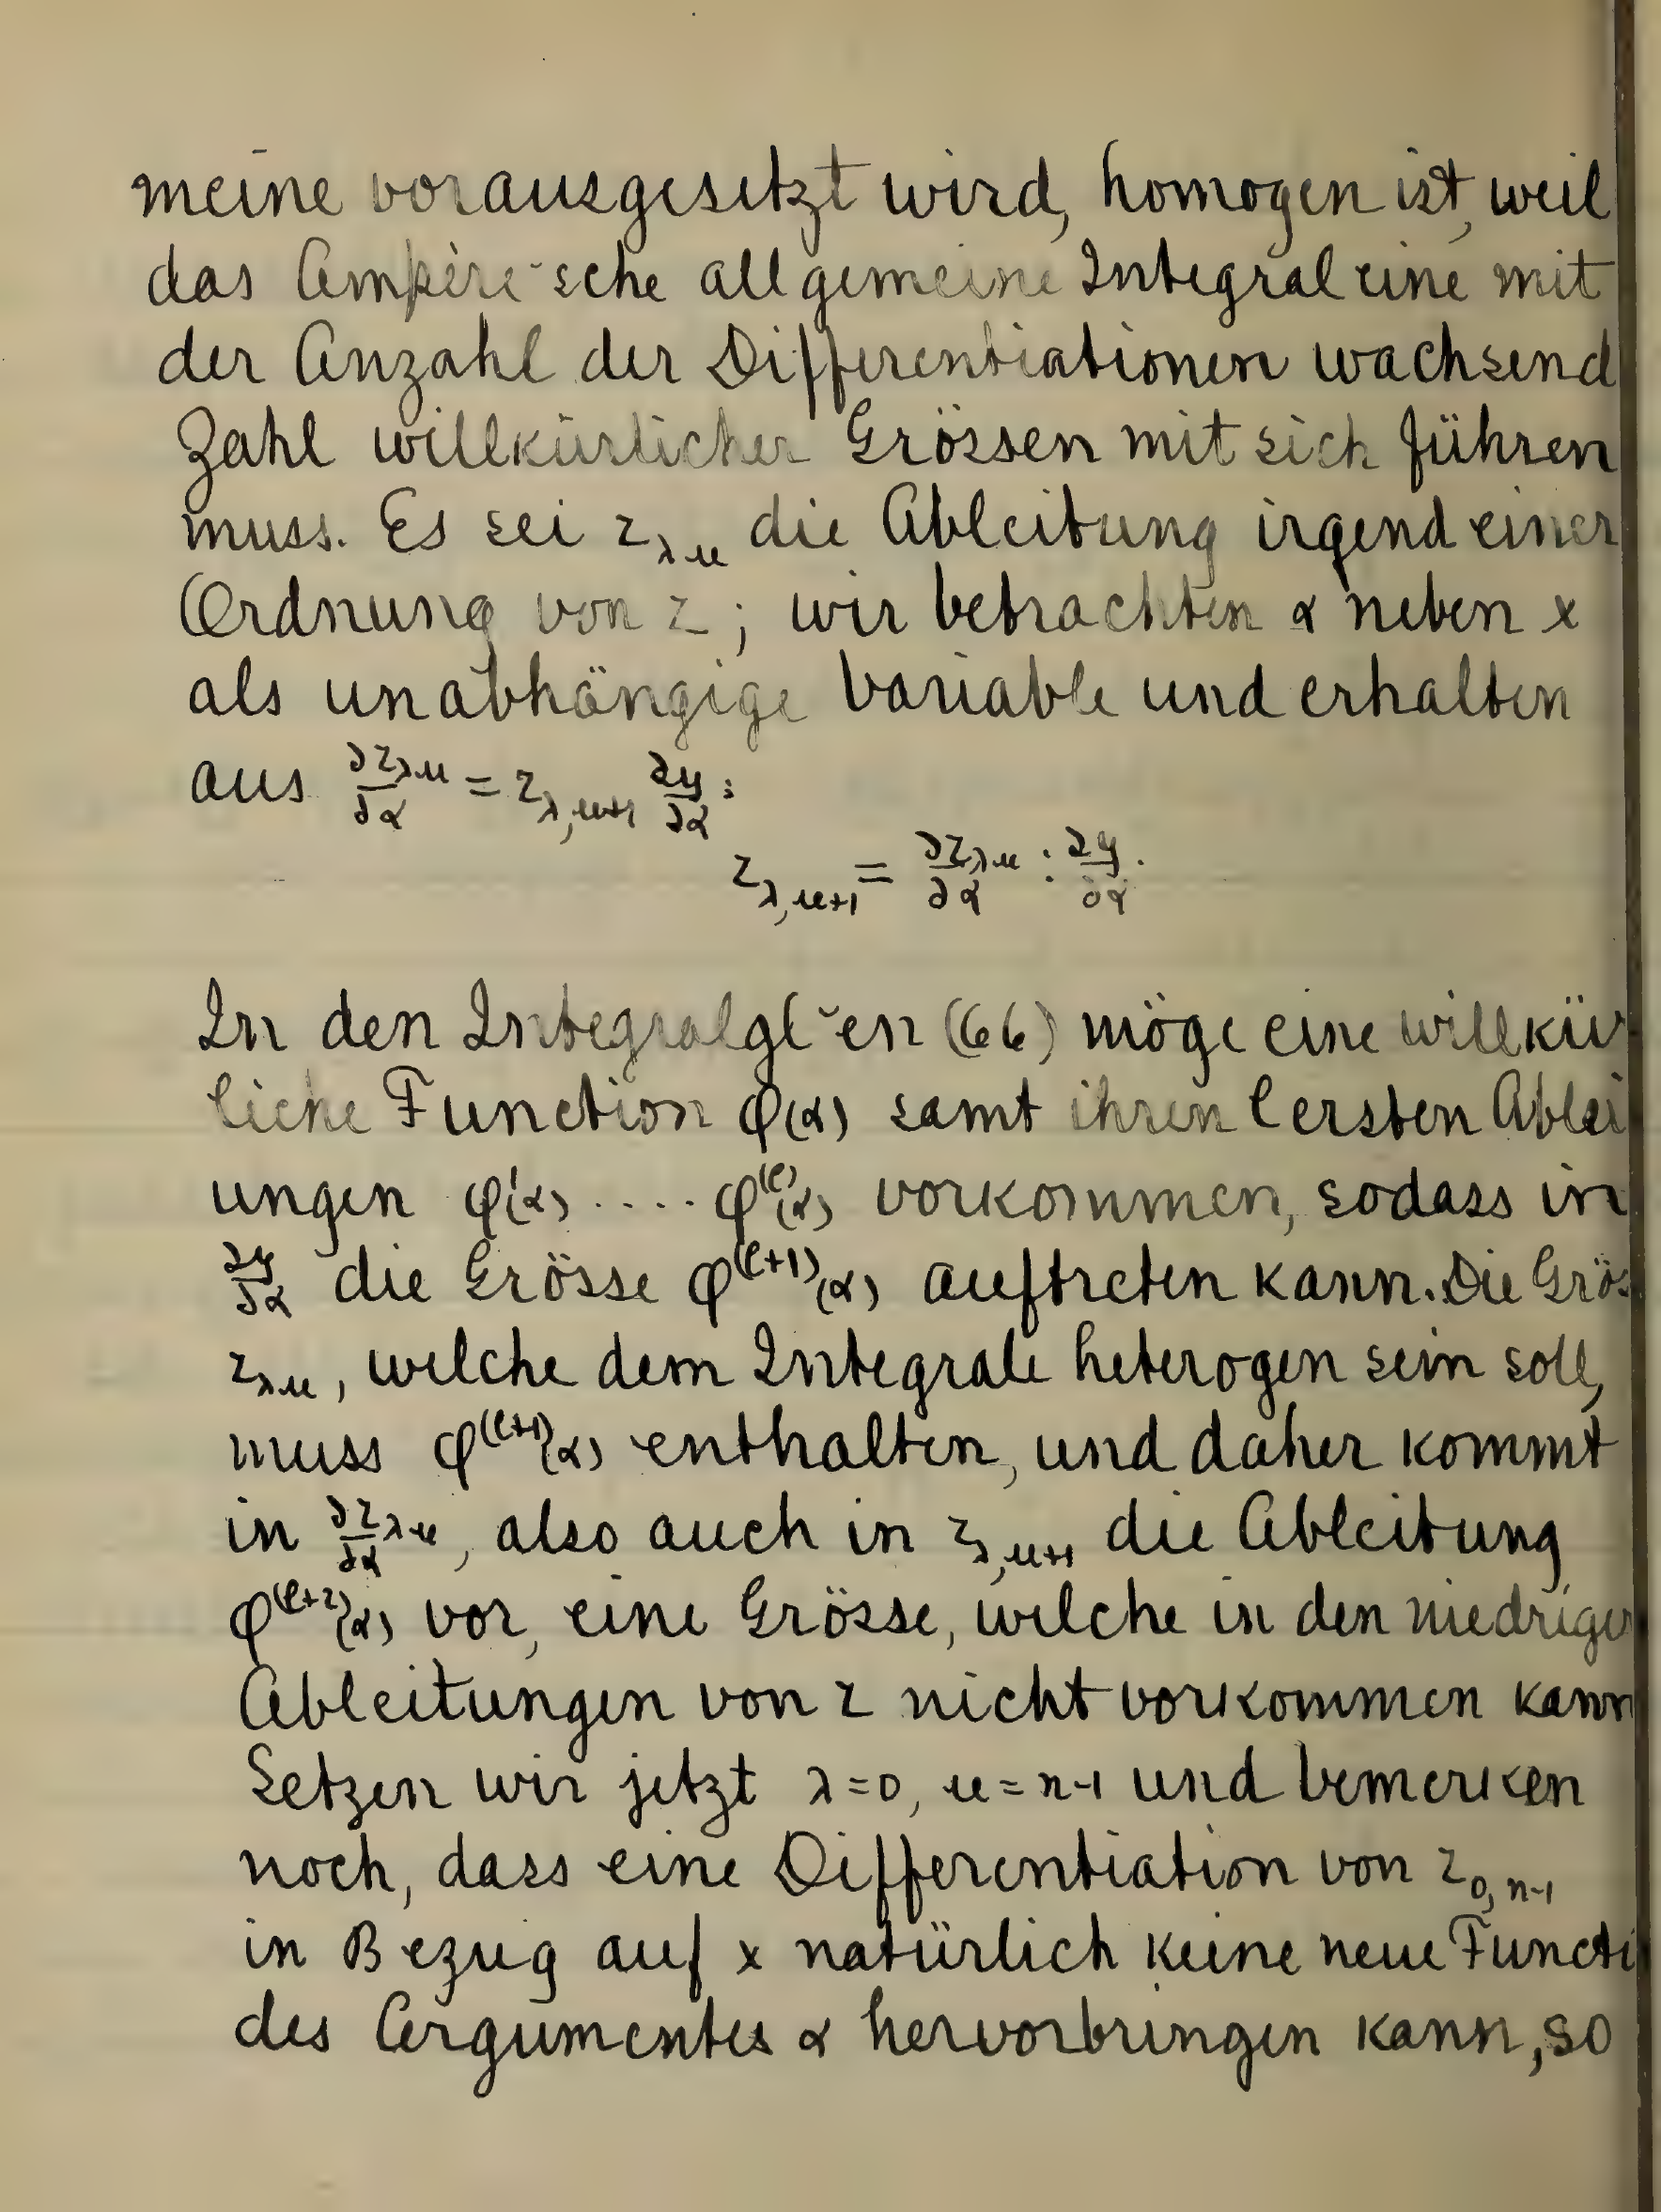 meine vorausgesetzt wird, homogen ist, weil
das Ampère'sche allgemeine Integral eine mit
der Anzahl der Differentiationen wachsend
Zahl willkürlicher Grössen mit sich führen
muss. Es sei z_{λμ} die Ableitung irgend einer
Ordnung von z; wir betrachten α neben x
als unabhängige Variable und erhalten
aus ∂z_{λμ}/∂α = z_{λ,μ+1} ∂y/∂α :
z_{λ,μ+1} = ∂z_{λμ}/∂α : ∂y/∂α.
In den Integralgl~en (66) möge eine willkür
liche Function φ(α) samt ihren l ersten Ablei
ungen φ'(α) .... φ^{(l)}(α) vorkommen, sodass in
∂y/∂α die Grösse φ^{(l+1)}(α) auftreten kann. Die Grös
z_{λμ}, welche dem Integrale heterogen sein soll,
muss φ^{(l+1)}(α) enthalten, und daher kommt
in ∂z_{λμ}/∂α, also auch in z_{λ,μ+1} die Ableitung
φ^{(l+2)}(α) vor, eine Grösse, welche in den niedriger
Ableitungen von z nicht vorkommen kann
Setzen wir jetzt λ=0, μ=n-1 und bemerken
noch, dass eine Differentiation von z_{0,n-1}
in Bezug auf x natürlich keine neue Functi
des Argumentes α hervorbringen kann, so